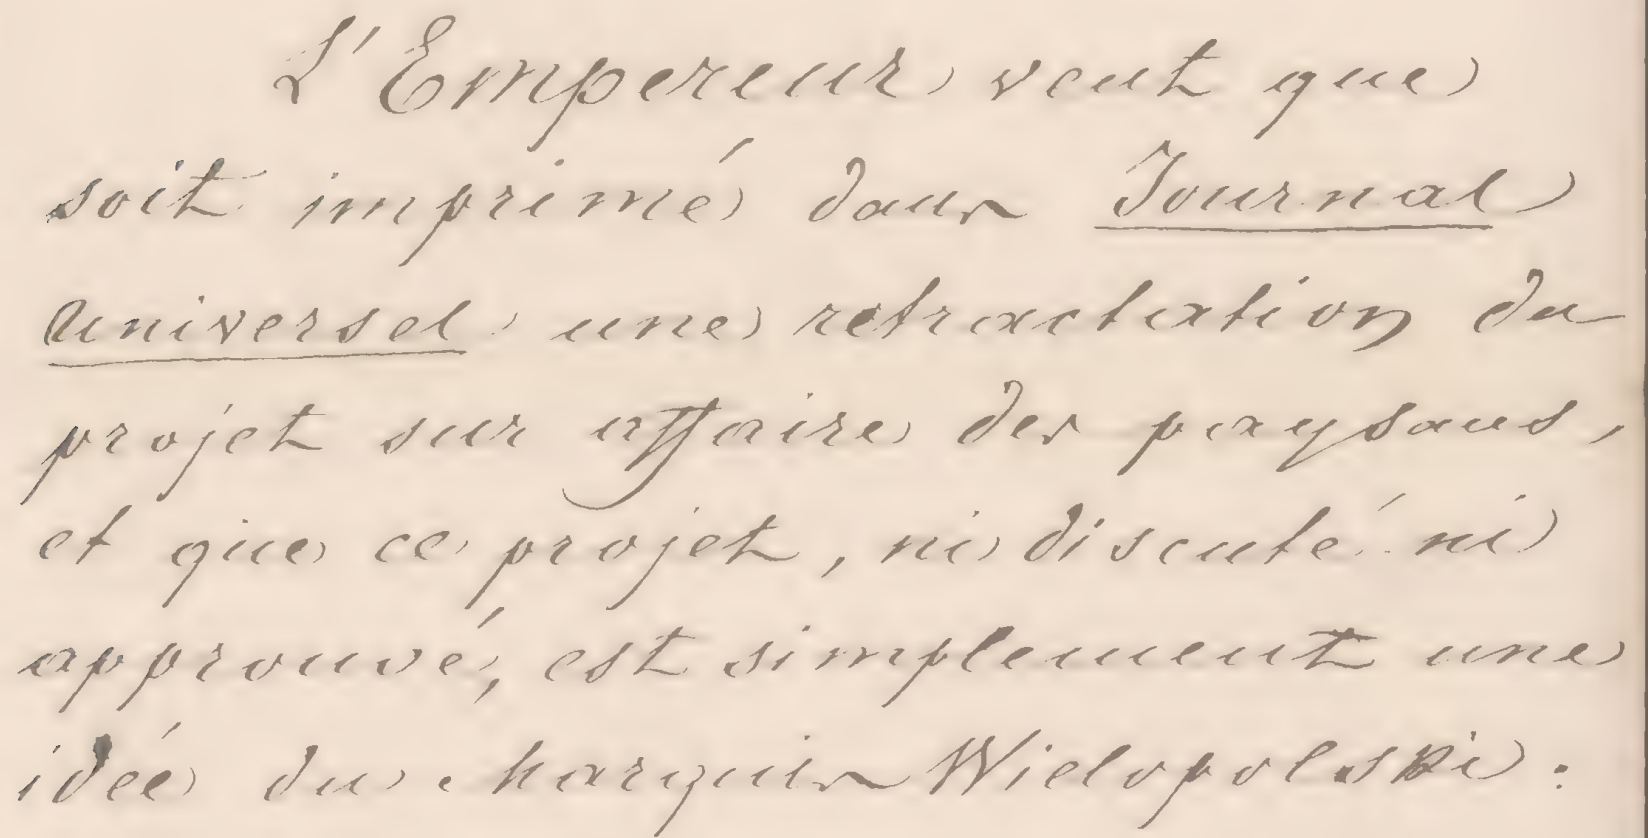 L'Empereur veut que
soit imprimé dans Journal
Universel une retractation du
projet sur affaire des paysans,
et que ce projet, ni discuté ni
approuvé, est simplement une
idée du Marquis Wielopolski: